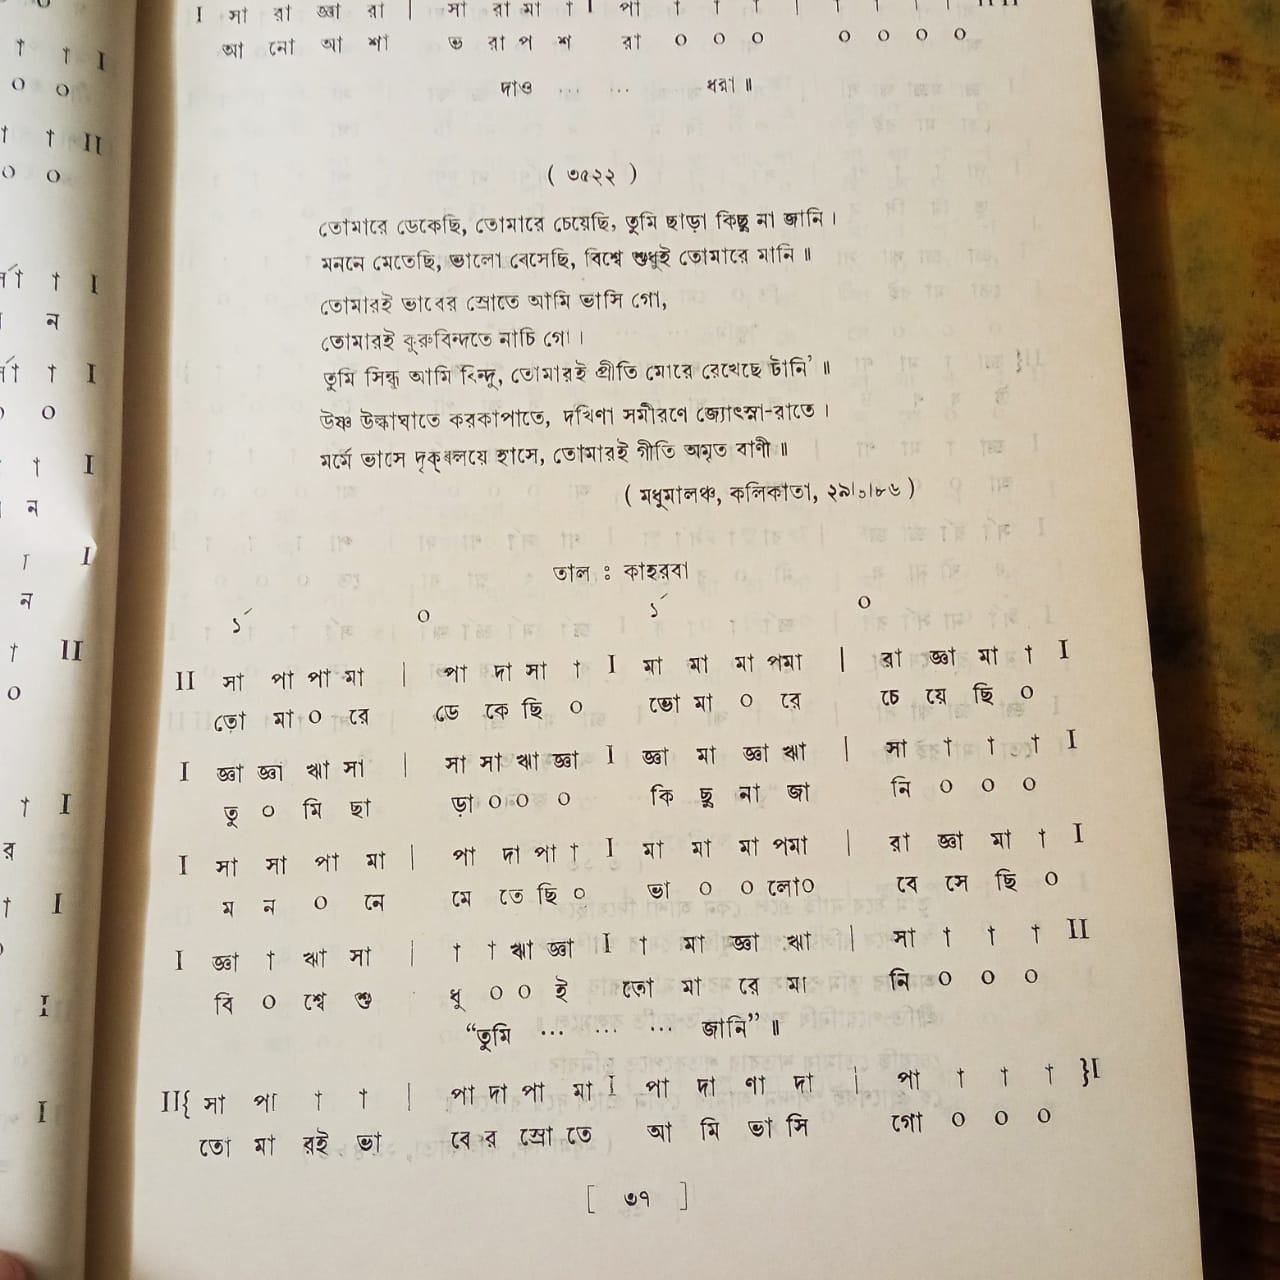 I সা রা জ্ঞা রা | সা রা মা † I পা † † † | † † † † II II
আ নো আ শা ভ রা প শ রা ০ ০ ০ ০ ০ ০ ০
দাও ... ... ধরা ॥
( ৩৫২২ )
তোমারে ডেকেছি, তোমারে চেয়েছি, তুমি ছাড়া কিছু না জানি ।
মননে মেতেছি, ভালো বেসেছি, বিশ্বে শুধুই তোমারে মানি ॥
তোমারই ভাবের স্রোতে আমি ভাসি গো,
তোমারই কুরুবিন্দতে নাচি গো ।
তুমি সিন্ধু আমি বিন্দু, তোমারই প্রীতি মোরে রেখেছে টানি' ॥
উষ্ণ উল্কাঘাতে করকাপাতে, দখিনা সমীরণে জ্যোৎস্না-রাতে ।
মর্মে ভাসে দৃক্‌বলয়ে হাসে, তোমারই গীতি অমৃত বাণী ॥
( মধুমালঞ্চ, কলিকাতা,
তাল : কাহারবা
১´ ০ ১´ ০
II সা পা পা মা | পা দা মা † I মা মা মা পমা | রা জ্ঞা মা † I
তো মা ০ রে ডে কে ছি ০ তো মা ০ রে চে য়ে ছি ০
I জ্ঞা জ্ঞা ঋা সা | সা সা ঋা জ্ঞা I জ্ঞা মা জ্ঞা ঋা | সা † † † I
তু ০ মি ছা ড়া ০ ০ ০ কি ছু না জা নি ০ ০ ০
I সা সা পা মা | পা দা পা † I মা মা মা পমা | রা জ্ঞা মা † I
ম ন ০ নে মে তে ছি ০ ভা ০ ০ লো০ বে সে ছি ০
I জ্ঞা † ঋা সা | † † ঋা জ্ঞা I † মা জ্ঞা ঋা | সা † † † II
বি ০ শ্বে শু ধু ০ ০ ই তো মা রে মা নি ০ ০ ০
“তুমি ... ... ... জানি” ॥
II{ সা পা † † | পা দা পা মা I পা দা ণা দা | পা † † † }I
তো মা রই ভা বে র স্রো তে আ মি ভা সি গো ০ ০ ০
[ ৩৭ ]